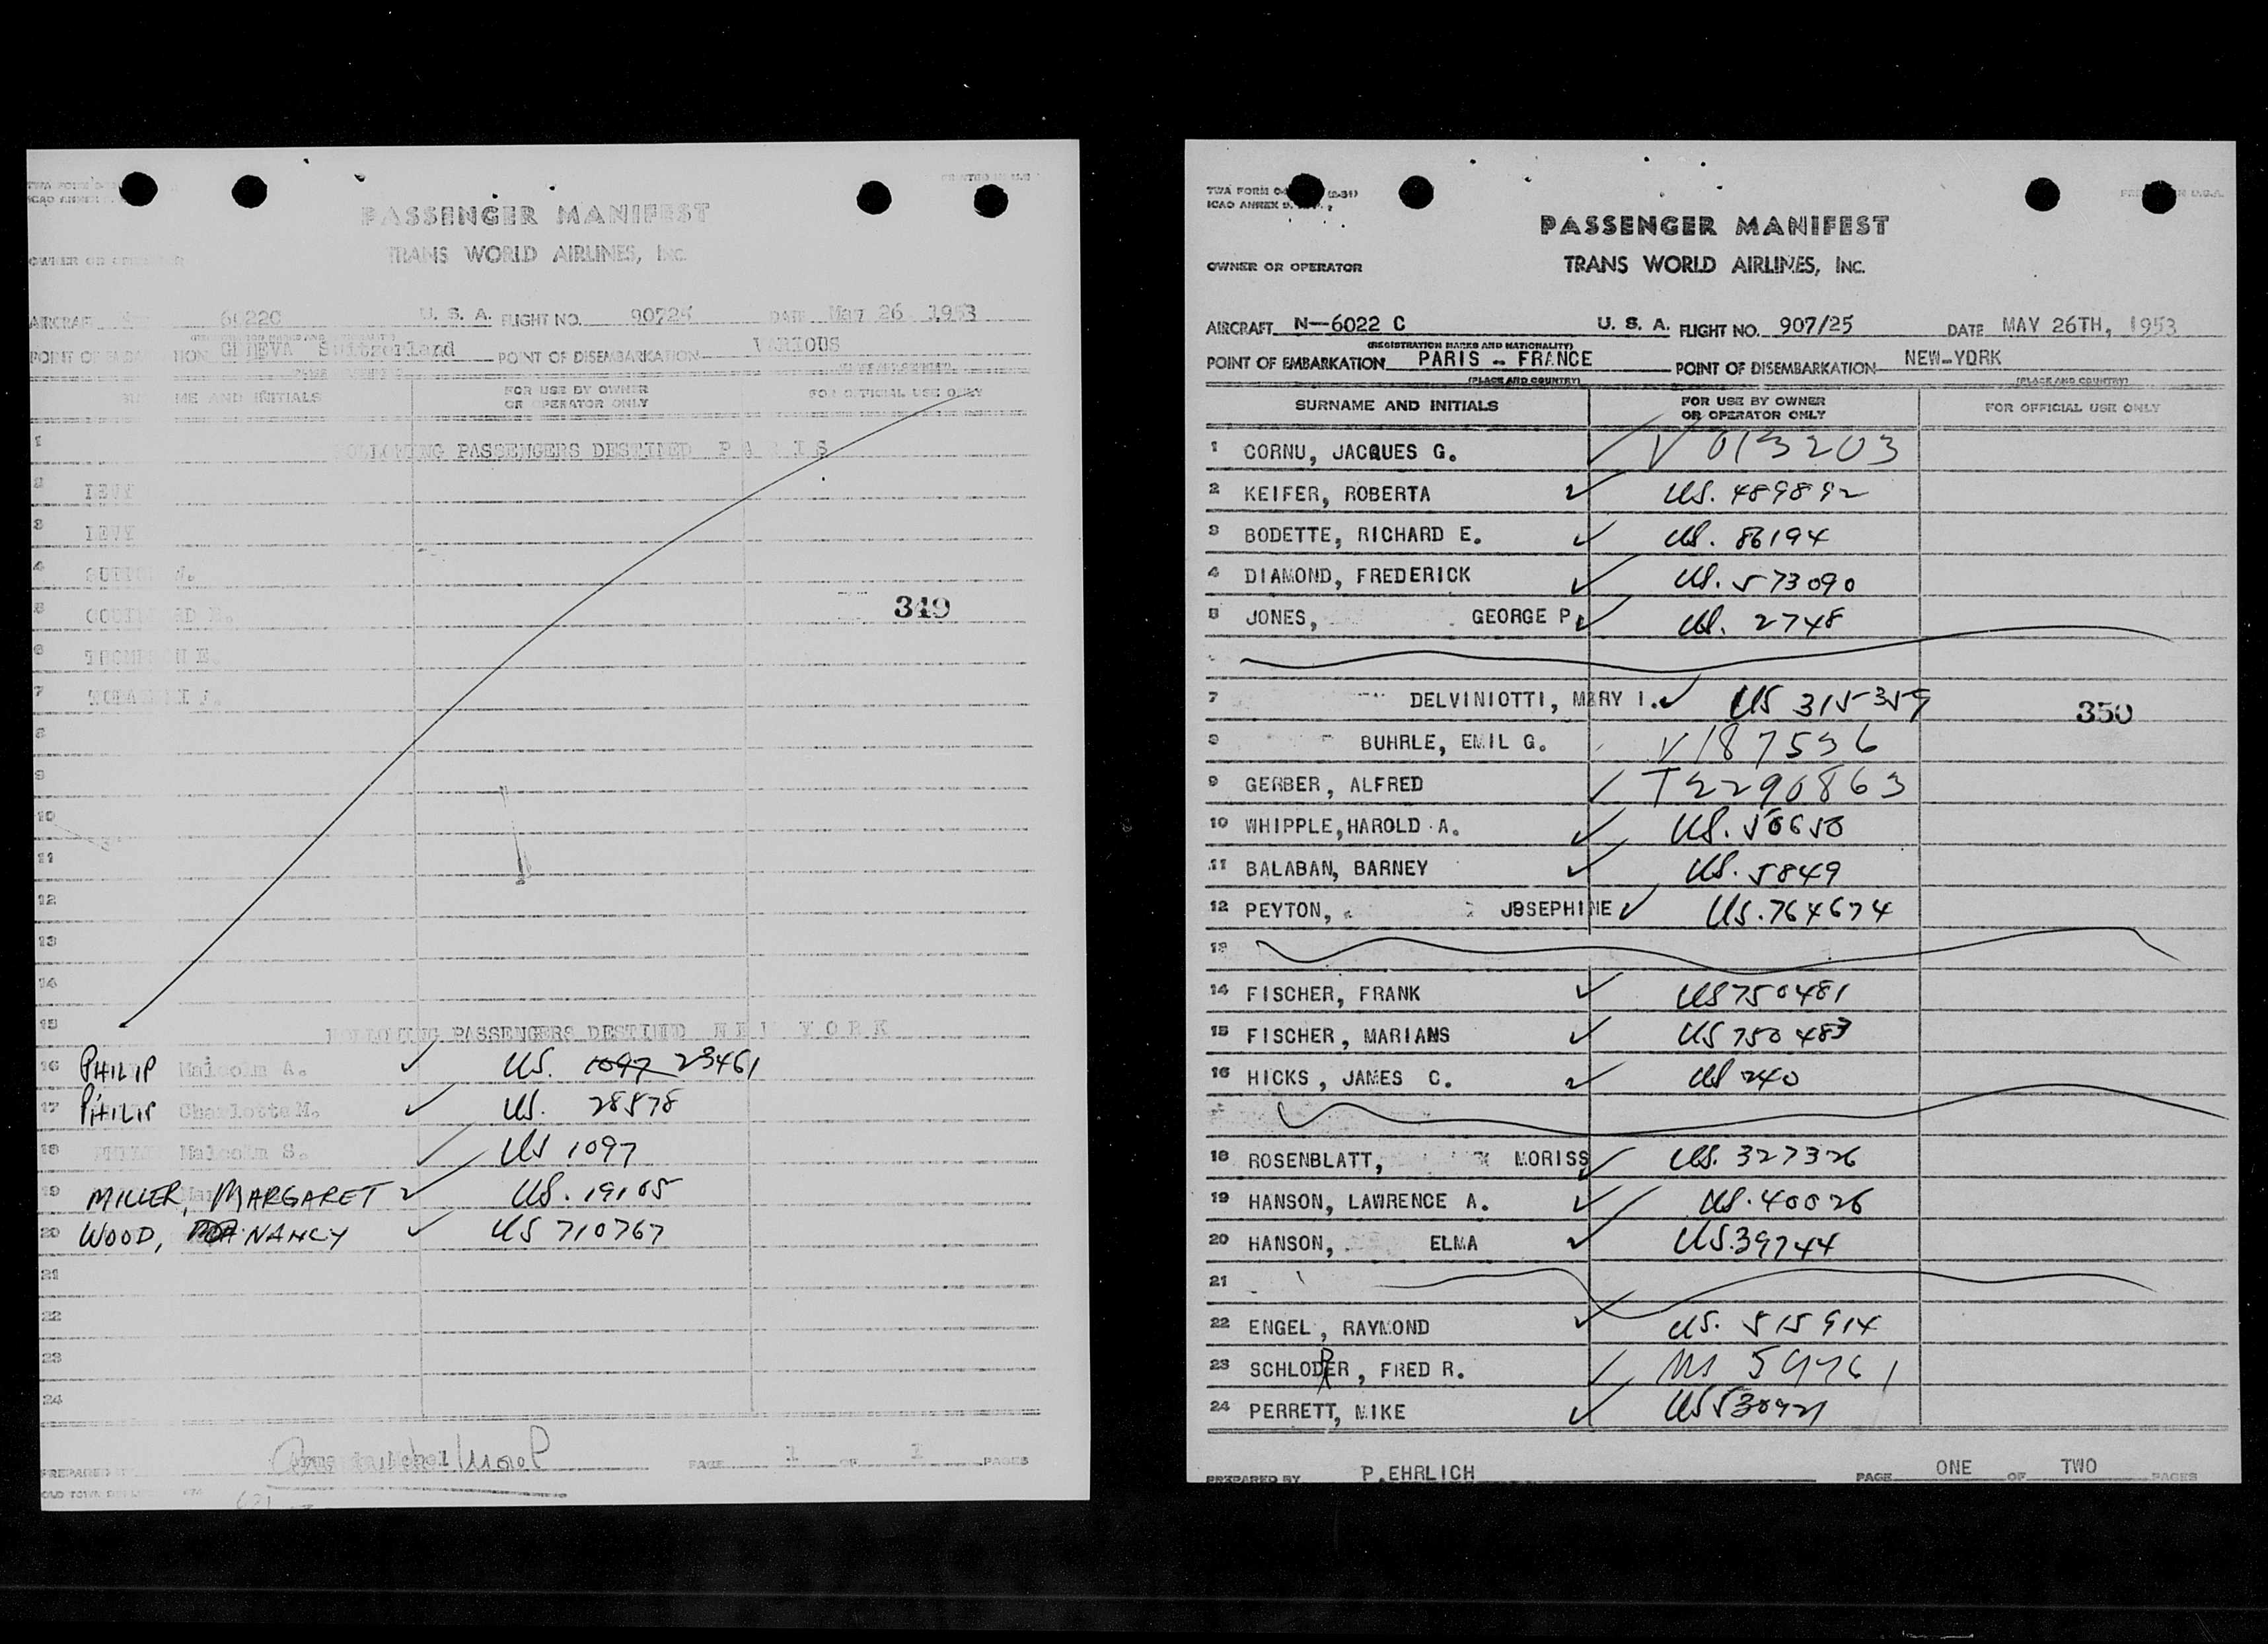 PASSENGER MANIFEST
TRANS WORLD AIRLINES, INC.
U. S. A. FLIGHT NO. DATE May 26 1953
GENEVA Switzerland POINT OF DISEMBARKATION VARIOUS
FOR USE BY OWNER
AND INITIALS OR OPERATOR ONLY FOR OFFICIAL USE ONLY
1 FOLLOWING PASSENGERS DESTINED P A R I S
2 LEVY
3 LEVY
4
5 349
6
7
8
9
10
11
12
13
14
15 FOLLOWING PASSENGERS DESTINED N E W Y O R K
16 PHILIP Malcolm A. US. 1097 23461
17 PHILIP Charlotte M. US. 28578
18 Malcolm S. US 1097
19 MILLER, MARGARET US. 19105
20 WOOD, NANCY US 710767
21
22
23
24
PREPARED BY PAGE 1 OF 1 PAGES
TWA FORM
ICAO ANNEX
PASSENGER MANIFEST
OWNER OR OPERATOR TRANS WORLD AIRLINES, INC.
AIRCRAFT N-6022 C U. S. A. FLIGHT NO. 907/25 DATE MAY 26TH, 1953
(REGISTRATION MARKS AND NATIONALITY)
POINT OF EMBARKATION PARIS - FRANCE POINT OF DISEMBARKATION NEW-YORK
(PLACE AND COUNTRY) (PLACE AND COUNTRY)
SURNAME AND INITIALS FOR USE BY OWNER OR OPERATOR ONLY FOR OFFICIAL USE ONLY
1 CORNU, JACQUES G. V 013203
2 KEIFER, ROBERTA US. 489892
3 BODETTE, RICHARD E. US. 86194
4 DIAMOND, FREDERICK US. 573090
5 JONES, GEORGE P. US. 2748
7 DELVINIOTTI, MARY I. US 315359 350
8 BUHRLE, EMIL G. V187536
9 GERBER, ALFRED T2290863
10 WHIPPLE, HAROLD A. US. 50650
11 BALABAN, BARNEY US. 5849
12 PEYTON, JOSEPHINE US. 764674
13
14 FISCHER, FRANK US 750481
15 FISCHER, MARIANS US 750483
16 HICKS, JAMES C. US 240
18 ROSENBLATT, MORISS US. 327326
19 HANSON, LAWRENCE A. US. 40026
20 HANSON, ELMA US. 39744
21
22 ENGEL, RAYMOND US. 515914
23 SCHLODER, FRED R. US
24 PERRETT, MIKE US
PREPARED BY P. EHRLICH PAGE ONE OF TWO PAGES